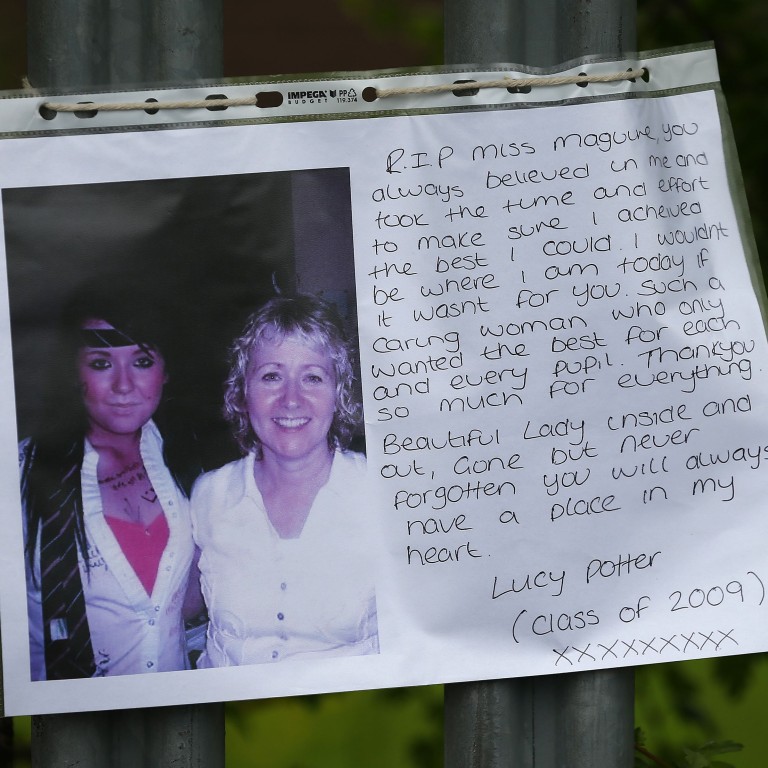 IMPEGA PP
BUDGET 119.374
R.I.P miss maguire, you
always believed in me and
took the time and effort
to make sure I acheived
the best I could. I wouldnt
be where I am today if
it wasnt for you. Such a
caring woman who only
wanted the best for each
and every pupil. Thankyou
so much for everything.
Beautiful Lady inside and
out, Gone but never
forgotten you will always
have a place in my
heart.
Lucy Potter
(class of 2009)
xxxxxxxxx